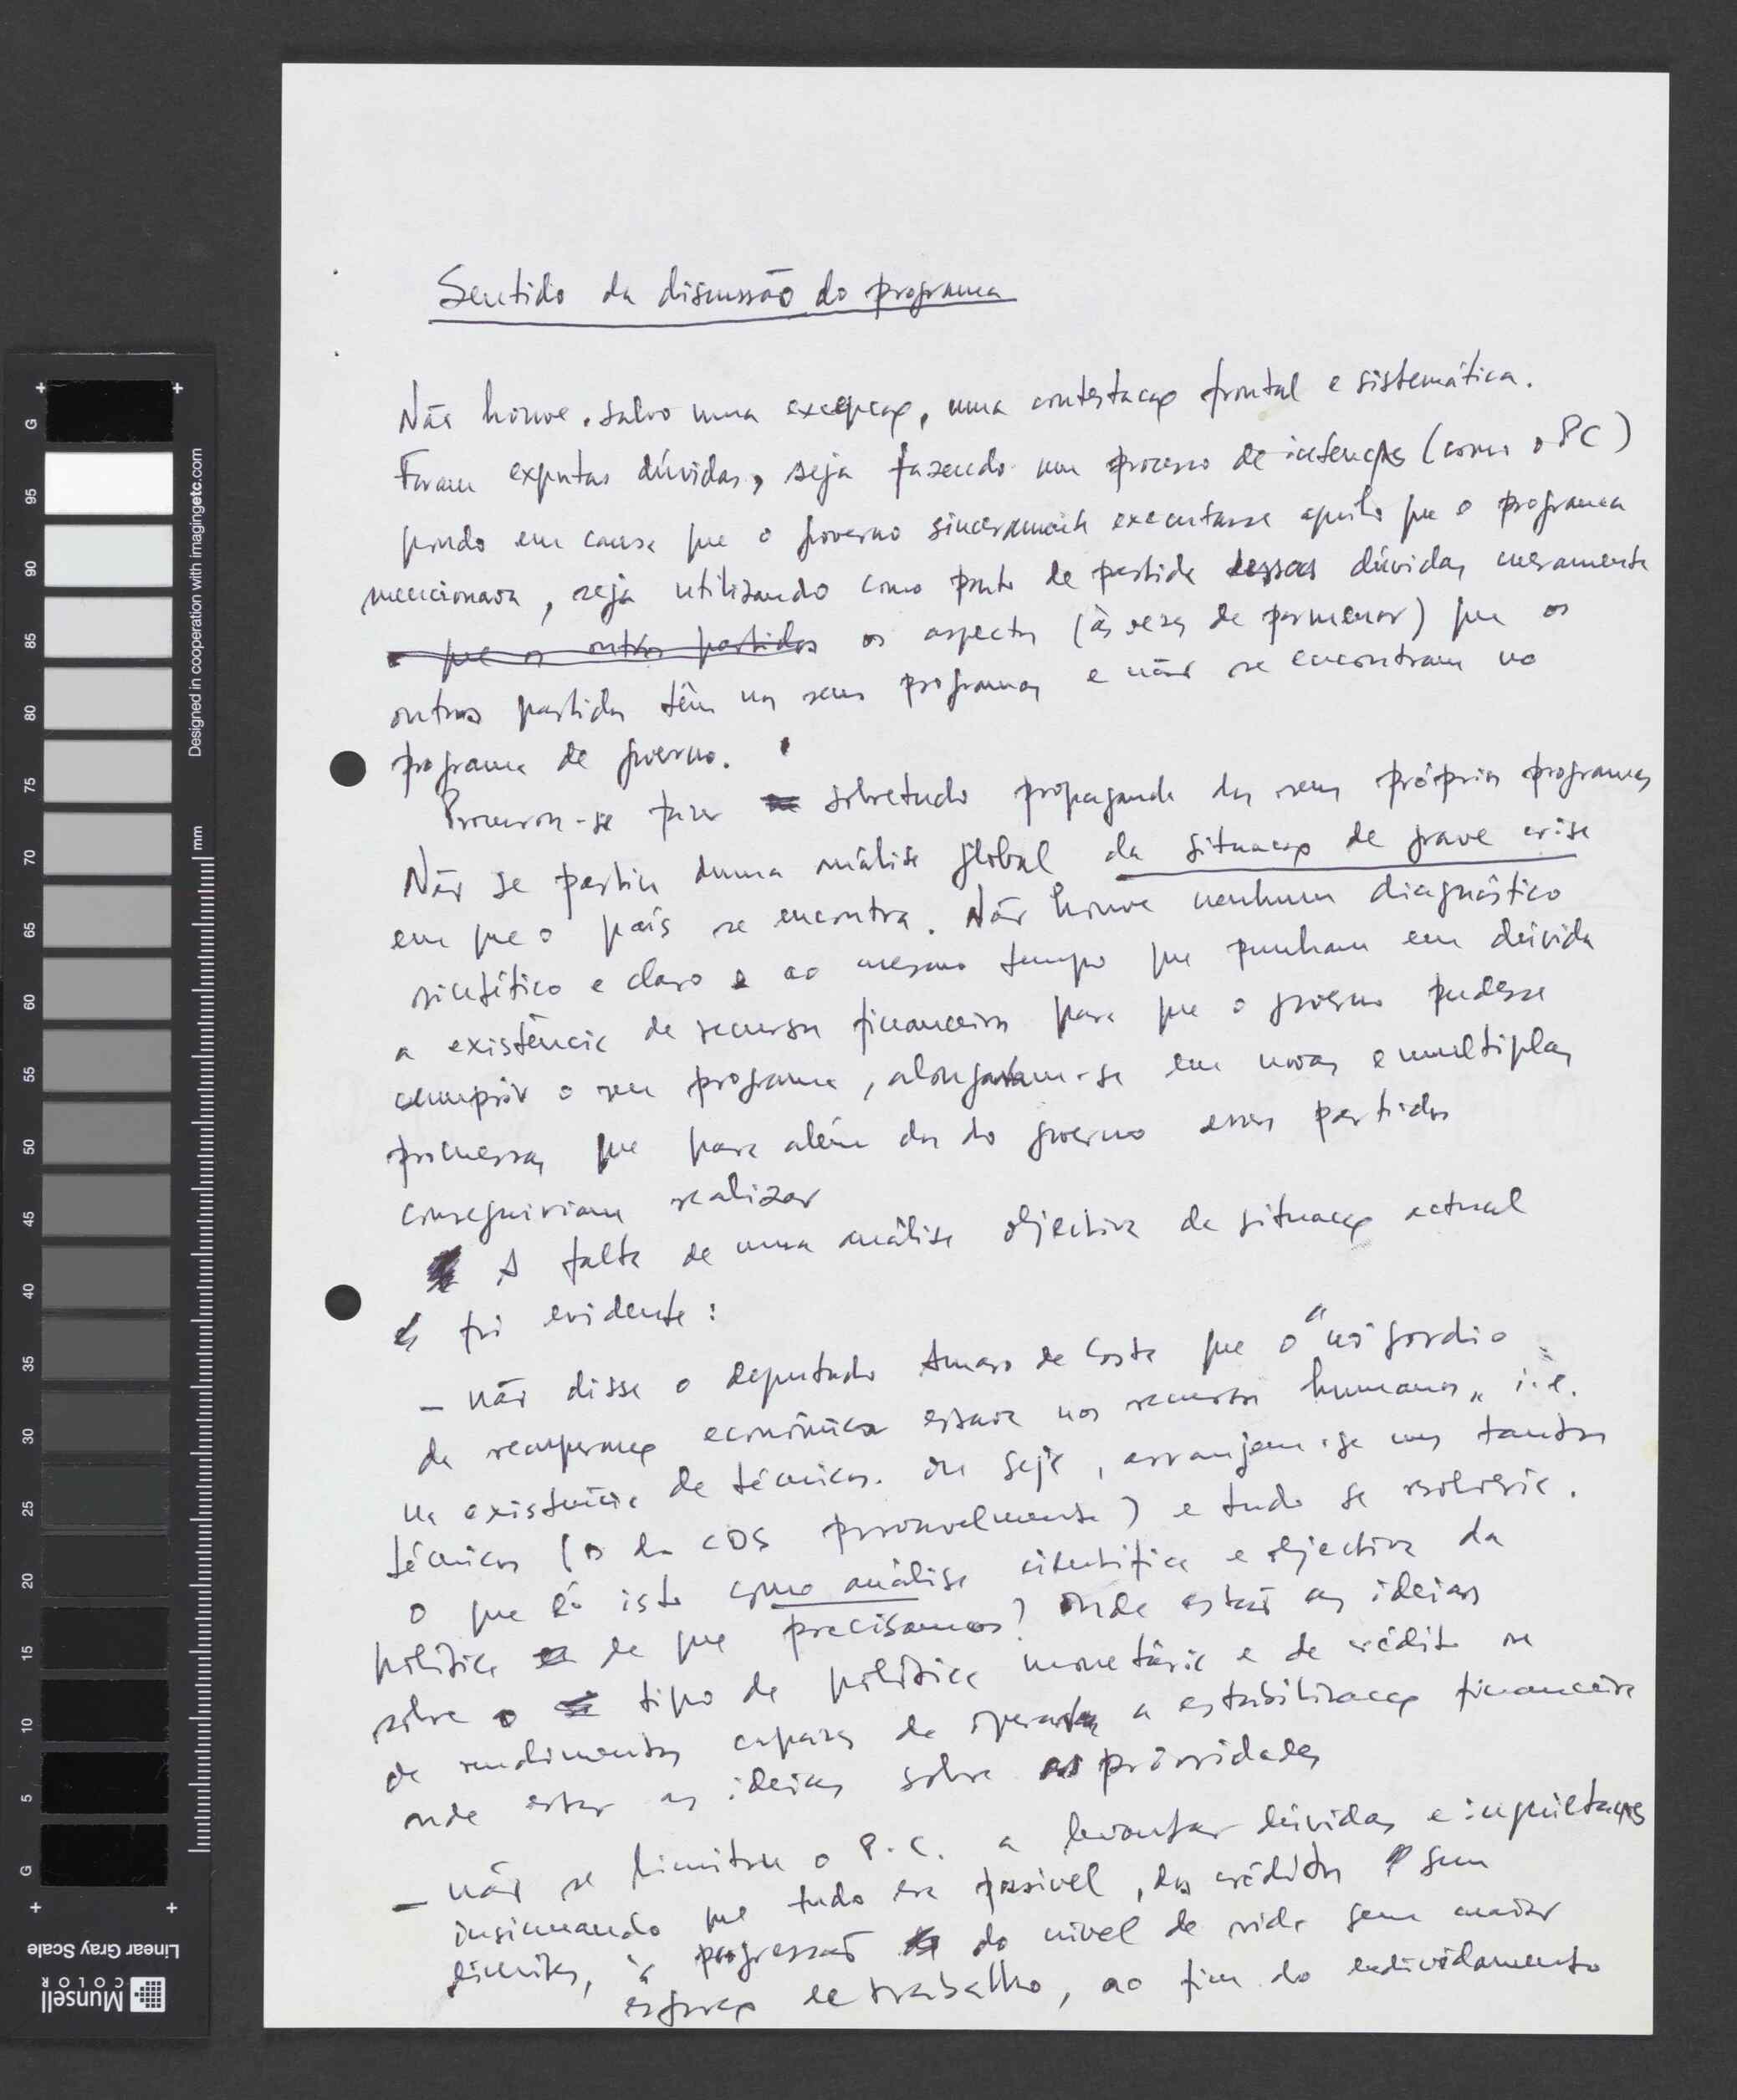 Sentido da discussão do programa
Não houve, salvo uma excepção, uma contestação frontal e sistemática.
Foram expostas dúvidas, seja fazendo um processo de intenções (como o PC)
pondo em causa que o governo sinceramente executasse aquilo que o programa
mencionava, seja utilizando como ponto de partida dessas dúvidas meramente
que os outros partidos os aspectos (às vezes de pormenor) que os
outros partidos têm nos seus programas e não se encontram no
programa de governo.
Procurou-se fazer sobretudo propaganda dos seus próprios programas
Não se partiu duma análise global da situação de grave crise
em que o país se encontra. Não houve nenhum diagnóstico
sintético e claro e ao mesmo tempo que punham em dúvida
a existência de recursos financeiros para que o governo pudesse
cumprir o seu programa, alongavam-se em novas e multiplas
promessas que para além das do governo esses partidos
conseguiriam realizar
A falta de uma análise objectiva da situação actual
foi evidente:
— não disse o deputado Amaro da Costa que o "nó gordio
da recuperação económica estava nos recursos humanos", i.é.
na existência de técnicos. Ou seja, arranjem-se uns tantos
técnicos (os do CDS provavelmente) e tudo se resolveria.
O que é isto como análise cientifica e objectiva da
política de que precisamos? Onde estão as ideias
sobre o tipo de política monetária e de crédito
de rendimentos capazes de operar a estabilização financeira
onde estão as ideias sobre as prioridades
— não se limitou o P.C. a levantar dúvidas e inquietações
insinuando que tudo era possivel, dos créditos sem
limites, à progressão do nivel de vida sem maior
esforço de trabalho, ao fim do endividamento
Designed in cooperation with imagingetc.com
mm
G
95
90
85
80
75
70
65
60
55
50
45
40
35
30
25
20
15
10
5
G
Linear Gray Scale
Munsell
COLOR